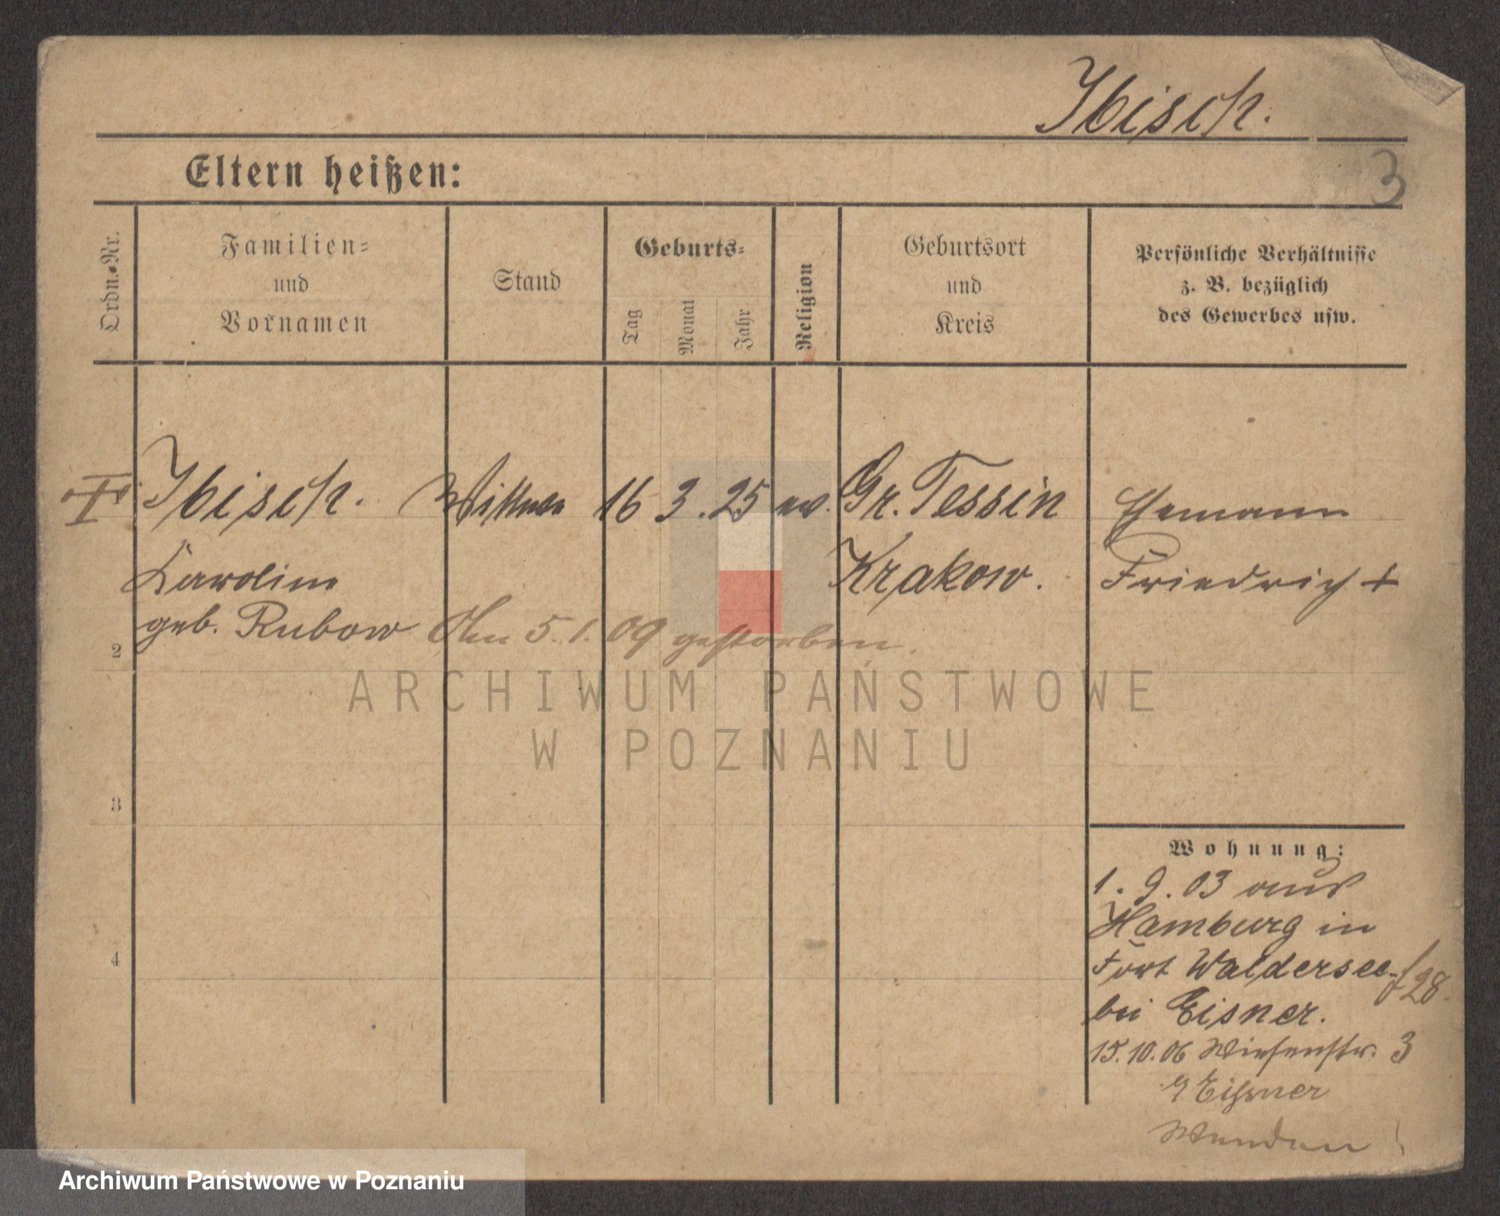 Ibisch.
3
Eltern heißen:
Ordn.-Nr.
Familien-
und
Vornamen
Stand
Geburts-
Tag
Monat
Jahr
Religion
Geburtsort
und
Kreis
Persönliche Verhältnisse
z. B. bezüglich
des Gewerbes usw.
Ibisch. Wittwe 16 3. 25 ev. Gr. Tessin Ehemann
Karoline Krakow. Friedrich +
geb. Rubow Am 5. 1. 09 gestorben.
2
ARCHIWUM PAŃSTWOWE
W POZNANIU
3
Wohnung:
1. 9. 03 aus
Hamburg in
4
Fort Waldersee 28.
bei Eisner.
15. 10. 06 Wiesenstr. 3
Eisner
Wenden
Archiwum Państwowe w Poznaniu